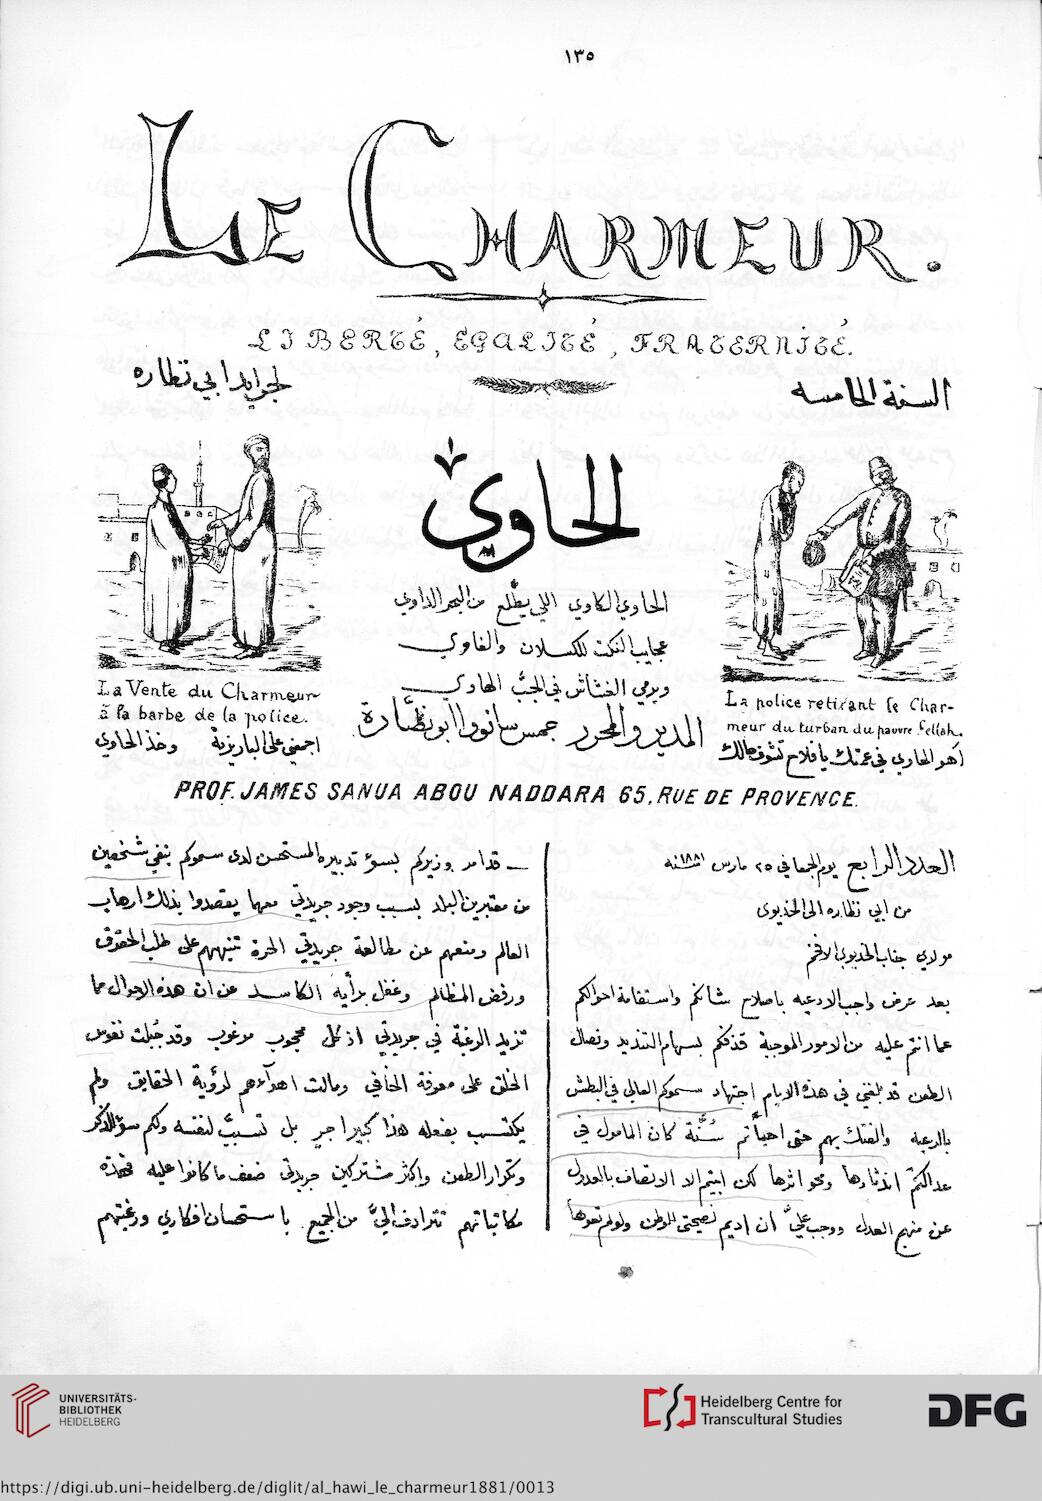 ١٣٥
LE CHARMEUR.
LIBERTÉ, EGALITÉ, FRATERNITÉ.
السنة الخامسه
لجرايد ابي نظاره
الحاوي
الحاوي الكاوي اللي يطلّع من البحر الداوي
عجايب النكت للكسلان والغاوي
ويرمي الغشاش في الجبّ الهاوي
المدير والمحرر جمس سانووا ابو نظّارة
La Vente du Charmeur
à la barbe de la police.
وخذ الحاوي
La police retirant le Char-
meur du turban du pauvre fellah.
اهو الحاوي في عمتك يا فلاح تشوف مالك
PROF. JAMES SANUA ABOU NADDARA 65, RUE DE PROVENCE.
العدد الرابع يوم الجمعا في ٢٥ مارس سنه ١٨٨١
من ابي نظاره الى الخديوى
مولدي جناب الخديوي الافخم
بعد عرض واجب الادعيه باصلاح شانكم واستقامة احوالكم
عما انتم عليه من الامور الموجبة قذفكم بسهام التنديد ونصال
الطعن قد بلغني في هذه الايام اجتهاد سموكم العالي في البطش
بالرعيه والفتك بهم حتى احياتم سُنّة كان المامول في
عدالتكم اندثارها ومحو اثرها لكن ابيتم الا الاتصاف بالعدول
عن منهج العدل ووجب عليَّ ان اديم نصيحتي للوطن ولو لم تعوها
ـ قدامر وزيركم بسؤ تدبيره المستحسن لدى سموكم بنفي شخصين
من معتبرين البلد بسبب وجود جريدتي معهما يقصدوا بذلك ارهاب
العالم ومنعهم عن مطالعة جريدتي الحرة تنبههم على طلب الحقوق
ورفض المظالم وغفل برأيه الكاسد عن ان هذه الاحوال مما
تزيد الرغبة في جريدتي اذ كل محجوب مرغوب وقد جُبلت نفوس
الخلق على معرفة الخافي ومالت اهواءهم لرؤية الحقايق ولم
يكتسب بفعله هذا كبير اجر بل تسبّب لنفسه ولكم سؤ الذكر
وتكرار الطعن واكثر مشتركين جريدتي ضعف ما كانوا عليه فهذه
مكاتباتهم تترادف اليَّ من الجميع باستحسان افكاري ورغبتهم
UNIVERSITÄTS-
BIBLIOTHEK
HEIDELBERG
Heidelberg Centre for
Transcultural Studies
DFG
https://digi.ub.uni-heidelberg.de/diglit/al_hawi_le_charmeur1881/0013